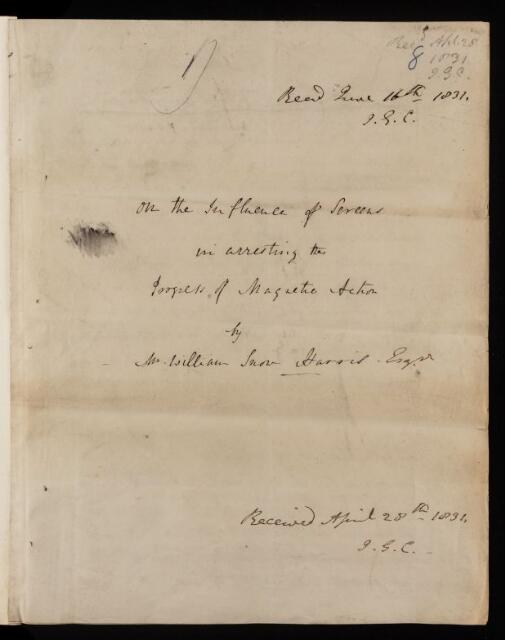 Rec.d Apl. 28
8 1831
J.G.C.
Read June 16th 1831.
J.G.C.
On the Influence of Screens
in arresting the
Progress of Magnetic Action
by
Mr. William Snow Harris Esqr.
Received April 28th 1831.
J.G.C.